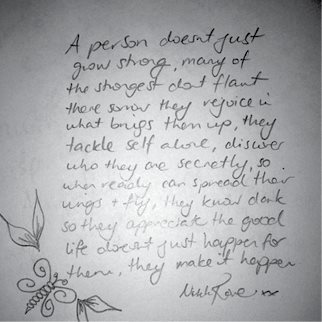 A person doesnt just
grow strong, many of
the strongest dont flaunt
there sorrow they rejoice in
what brings them up, they
tackle self alone, discover
who they are secretly, so
when ready can spread their
wings + fly, they know dark
so they appreciate the good
life doesnt just happen for
them, they make it happen